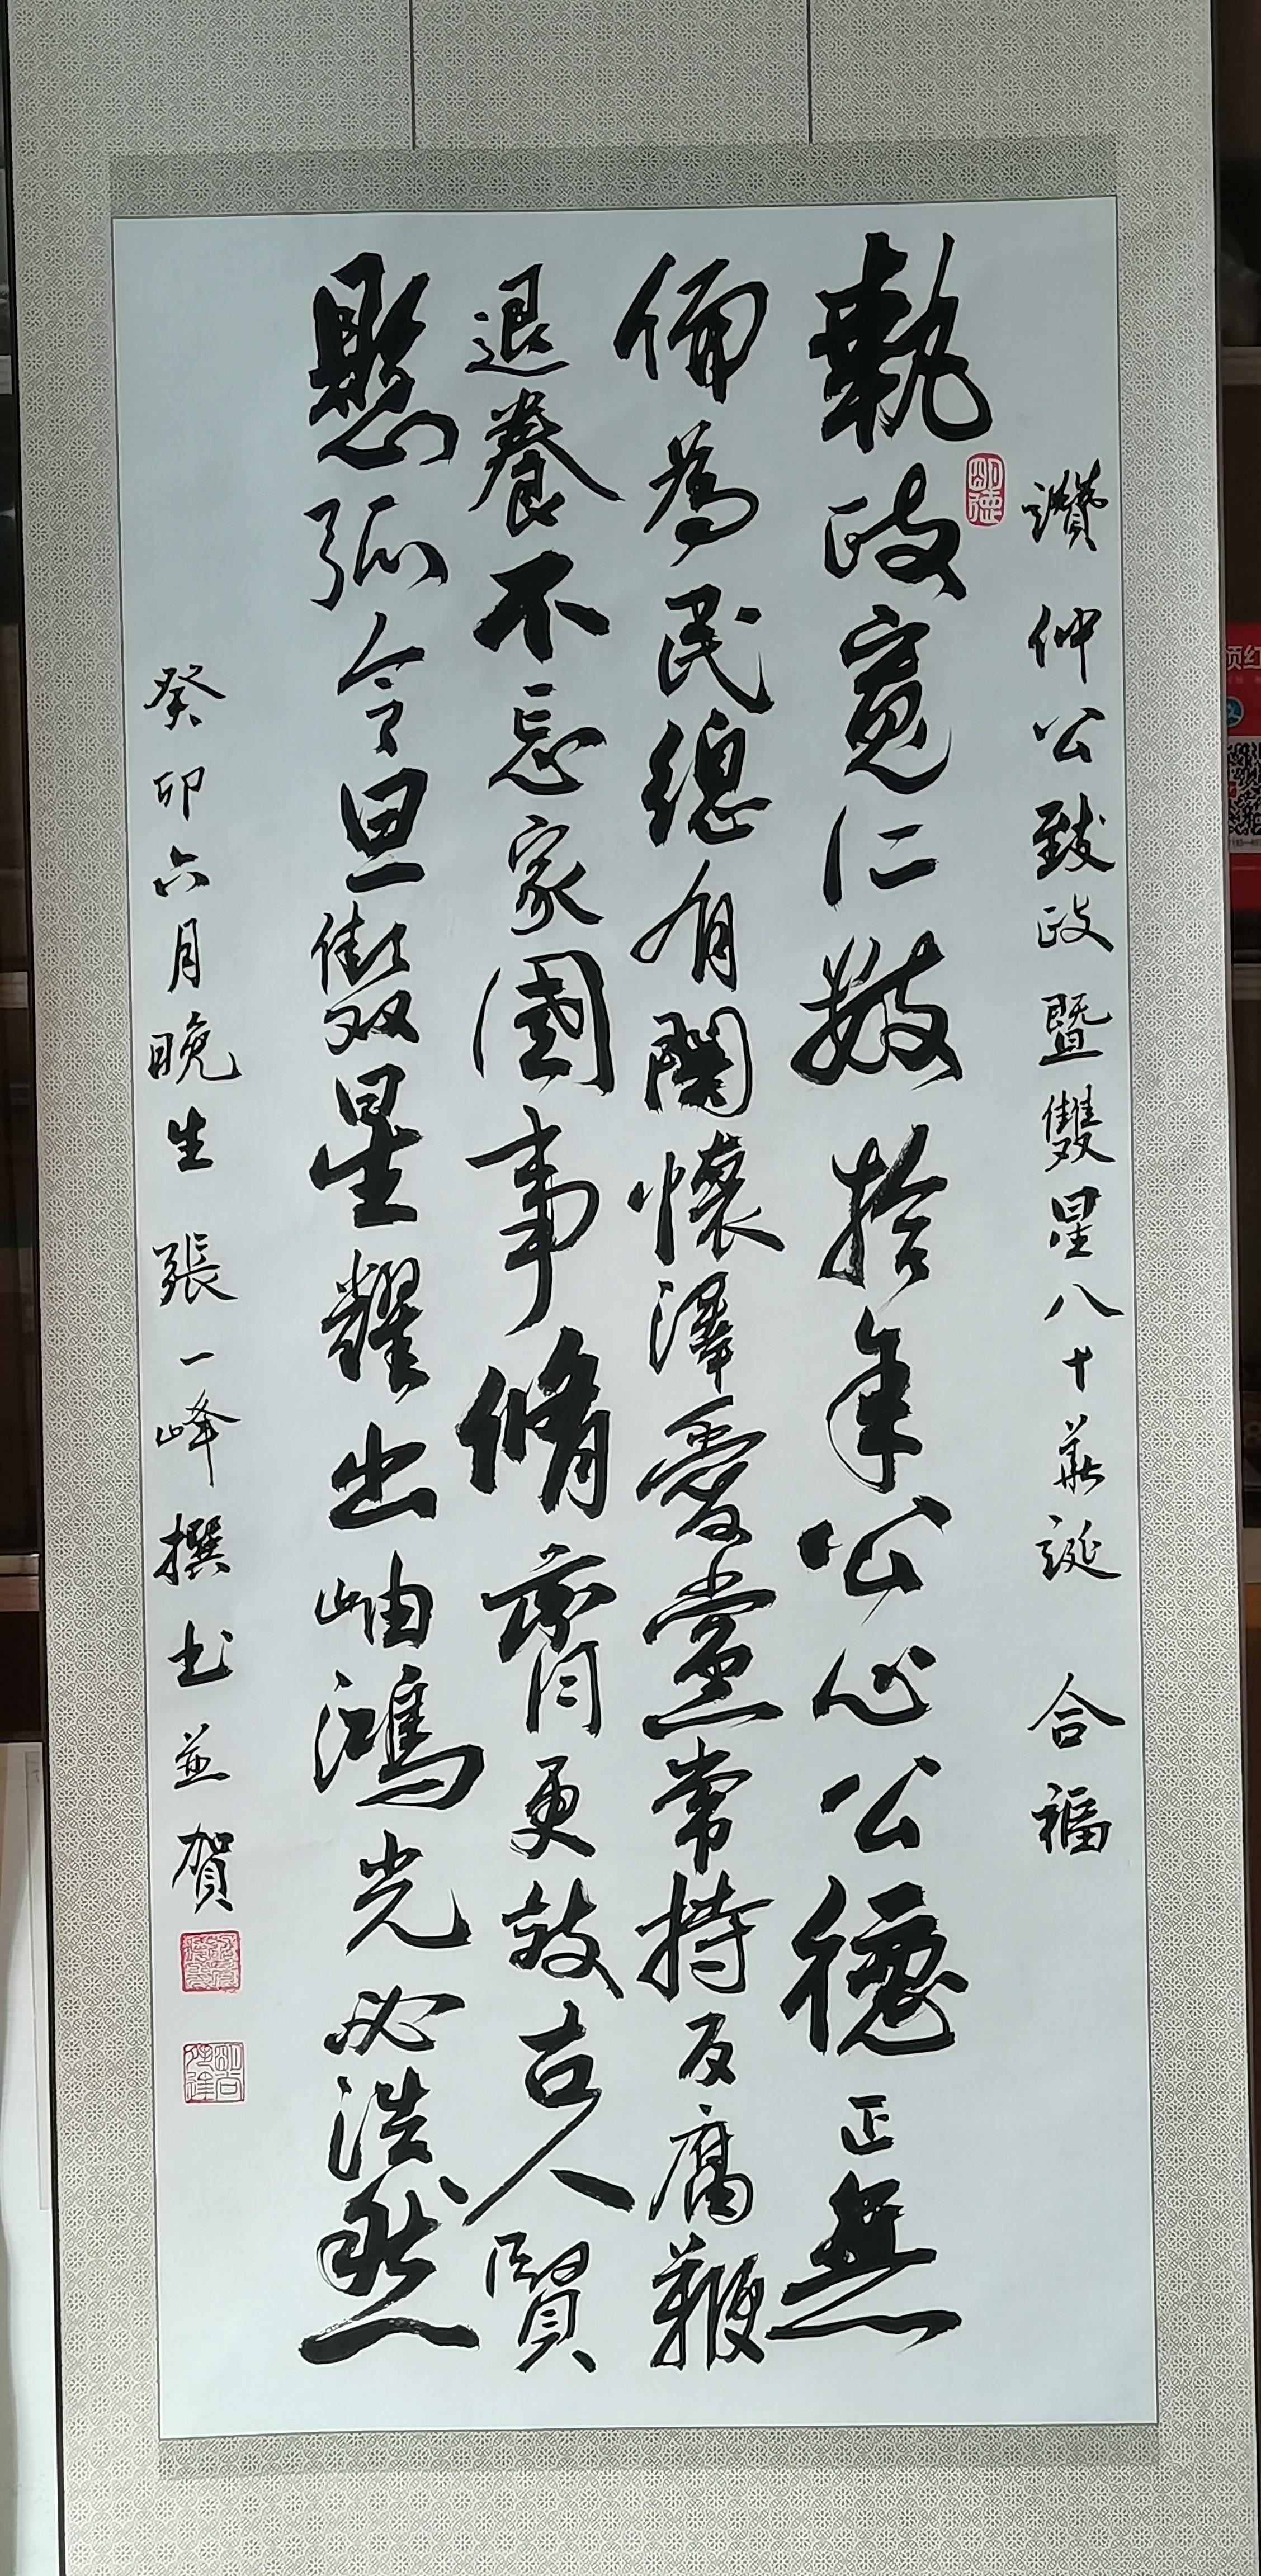 讚仲公致政暨雙星八十華誕 合福
執政寬仁數拾年公心公德正無
偏為民總有關懷澤愛黨常持反腐鞭
退養不忘家國事脩齊更效古人賢
懸弧令旦儆双星耀出岫鴻光必浩然
癸卯六月晚生張一峰撰书並賀
明德